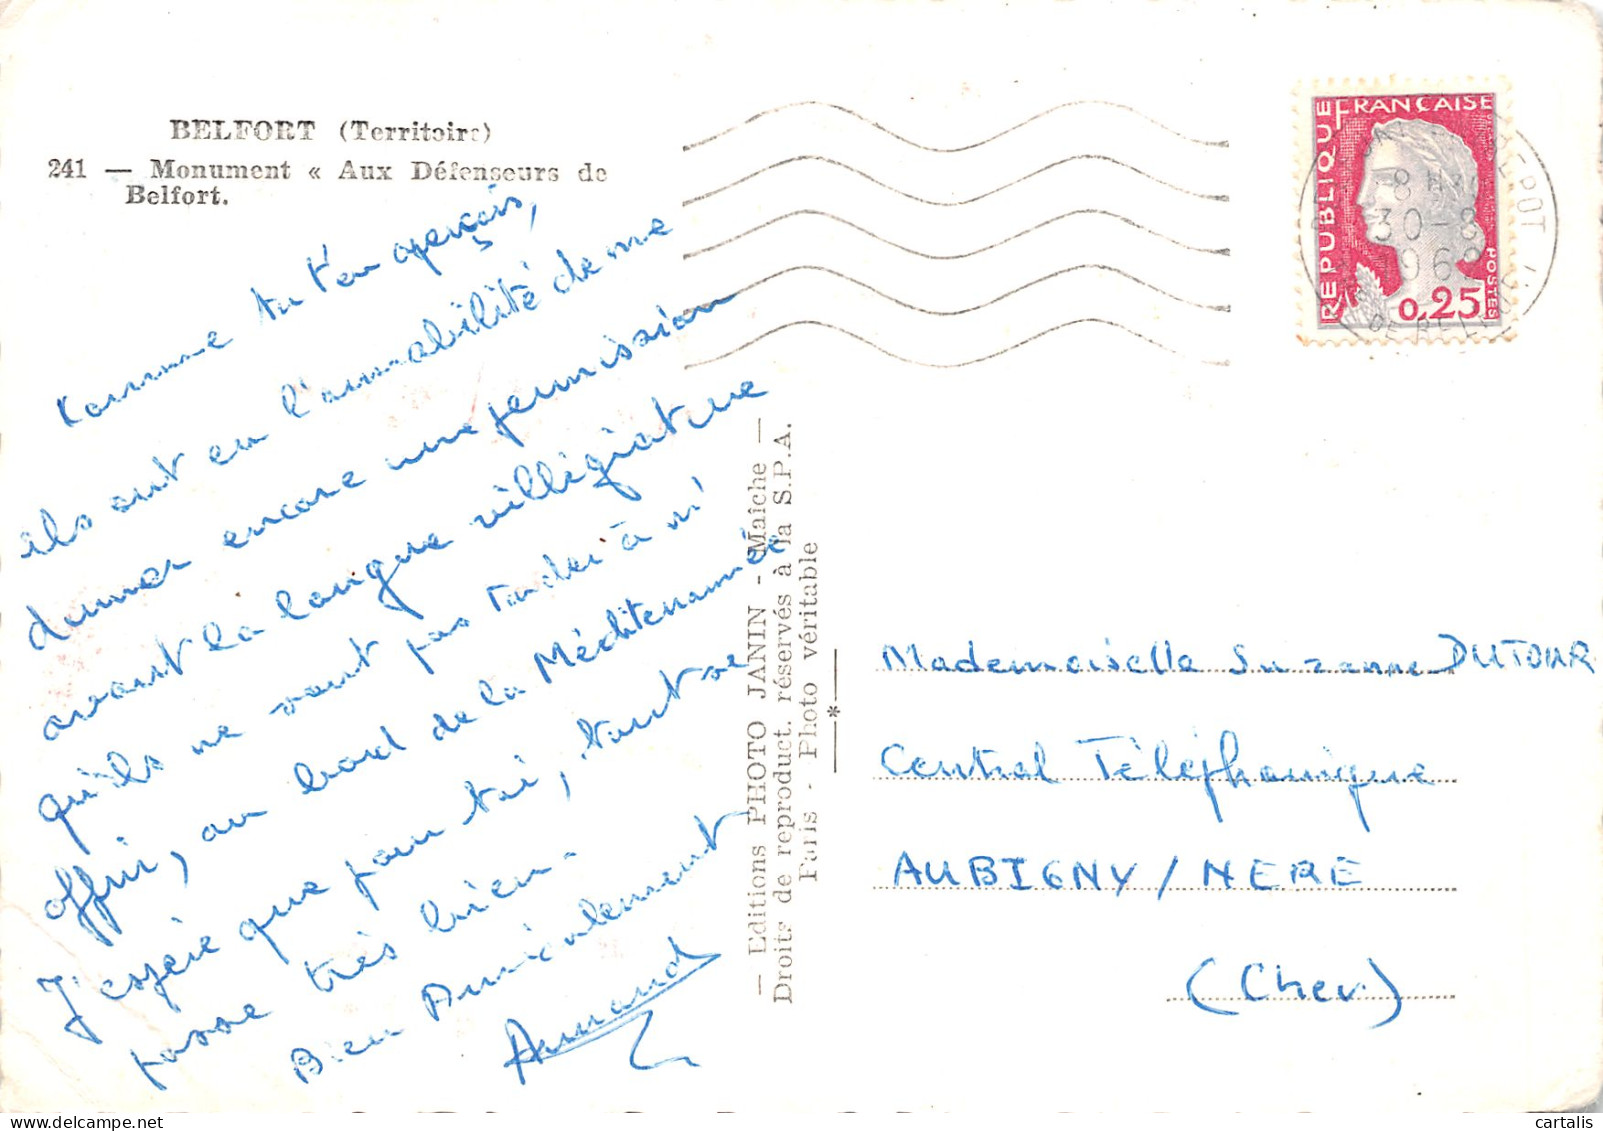 BELFORT (Territoire)
241 — Monument « Aux Défenseurs de
Belfort.
comme tu t'en aperçois,
ils ont eu l'amabilité de me
donner encore une permission
avant la longue villégiature
qu'ils ne vont pas tarder à m'
offrir, au bord de la Méditerrannée
J'espère que pour toi, tout se
passe très bien.
Bien Amicalement
Armand
— Editions PHOTO JANIN - Maîche —
Droits de reproduct. réservés à la S.P.A.
Paris - Photo véritable
*
REPUBLIQUE FRANÇAISE
POSTES
0,25
30-8
196
DEPOT
DE BELF
Mademoiselle Suzanne DUTOUR
Central Téléphonique
AUBIGNY / NERE
(Cher.)
cartalis